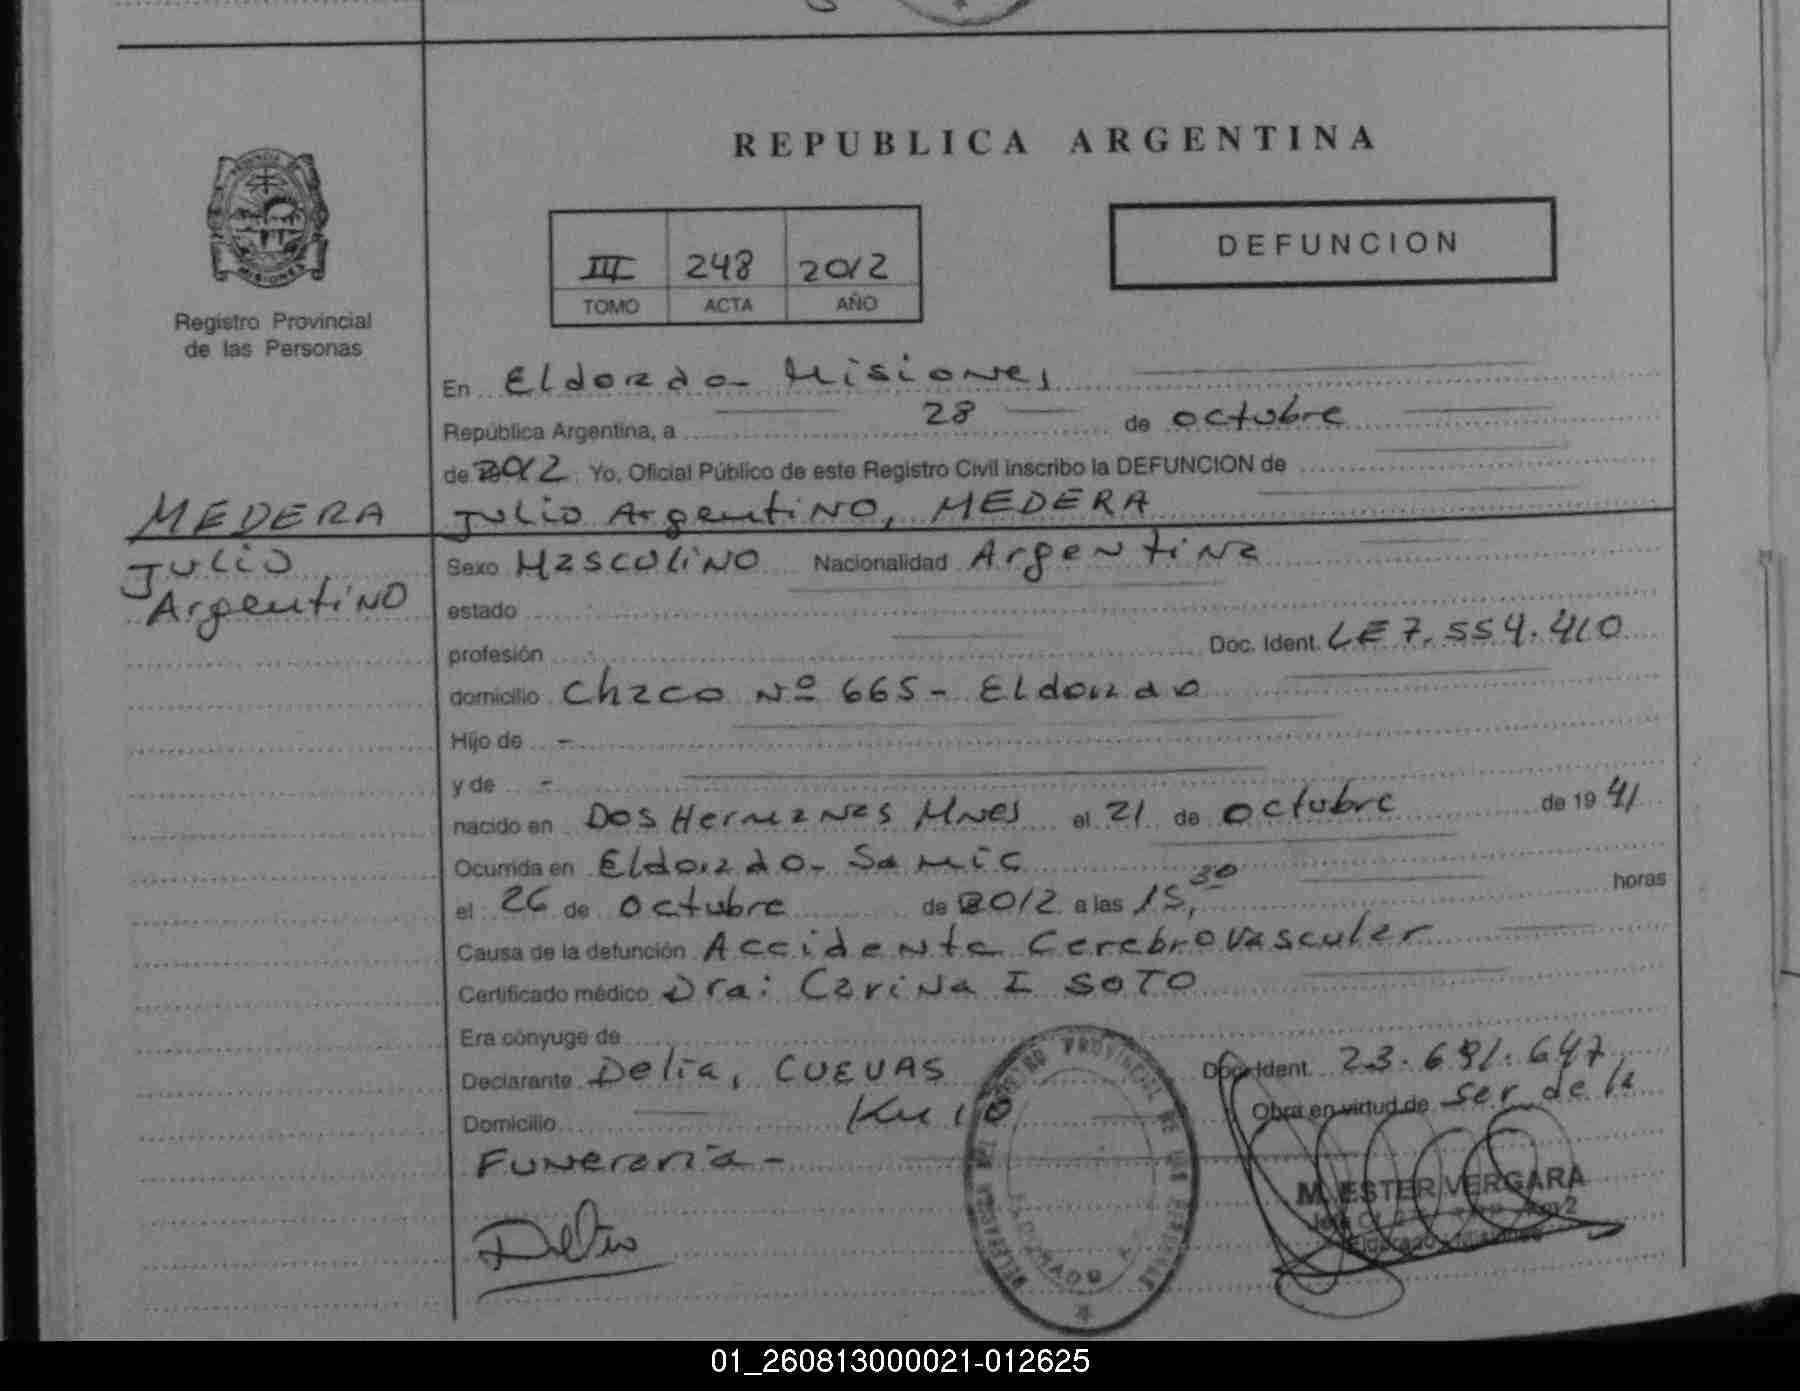 REPUBLICA ARGENTINA
DEFUNCION
III 248 2012
TOMO ACTA AÑO
MISIONES
Registro Provincial
de las Personas
En Eldorado - Misiones,
República Argentina, a 28 de octubre
de 2012 Yo, Oficial Público de este Registro Civil inscribo la DEFUNCION de
MEDERA
Julio Argentino, MEDERA
Julio
Argentino
Sexo Masculino Nacionalidad Argentina
estado
profesión Doc. Ident. LE 7.554.410
domicilio Chaco Nº 665 - Eldorado
Hijo de -
y de -
nacido en Dos Hermanas Mnes el 21 de octubre de 1941
Ocurrida en Eldorado - Samic
el 26 de octubre de 2012 a las 15,30 horas
Causa de la defunción Accidente Cerebrovascular
Certificado médico Dra: Carina I SOTO
Era cónyuge de
Declarante Delia, CUEVAS Doc. Ident. 23.691.647
Domicilio Km 10 Obra en virtud de ser de la
Funeraria -
Delia
REGISTRO PROVINCIAL DE LAS PERSONAS
ELDORADO
M. ESTER VERGARA
01_260813000021-012625